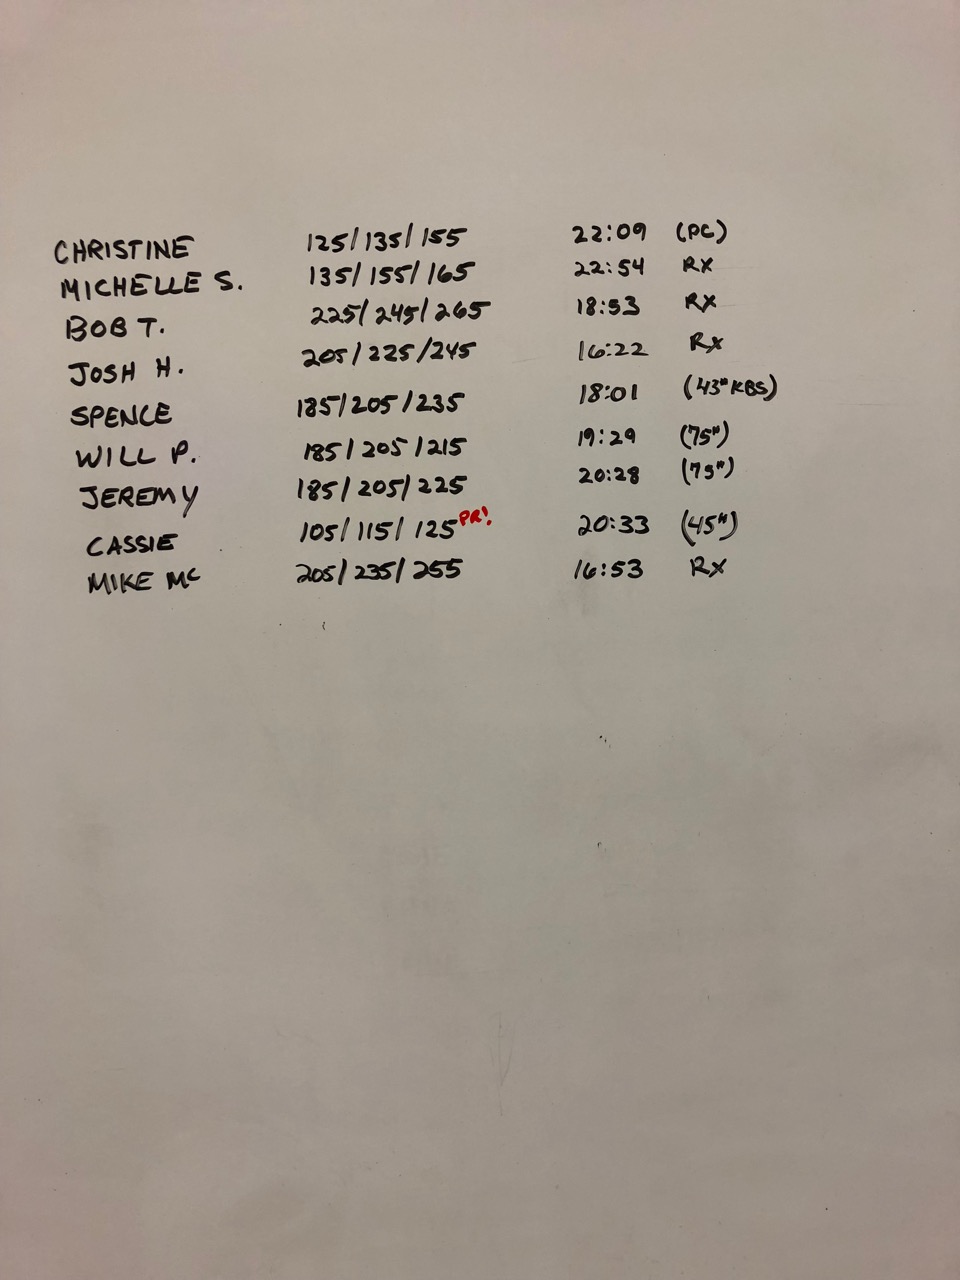 CHRISTINE 125/135/155 22:09 (PC)
MICHELLE S. 135/155/165 22:54 RX
BOB T. 225/245/265 18:53 RX
JOSH H. 205/225/245 16:22 RX
SPENCE 185/205/235 18:01 (43# KBS)
WILL P. 185/205/215 19:29 (75#)
JEREMY 185/205/225 20:28 (75#)
CASSIE 105/115/125 PR! 20:33 (45#)
MIKE MC 205/235/255 16:53 RX